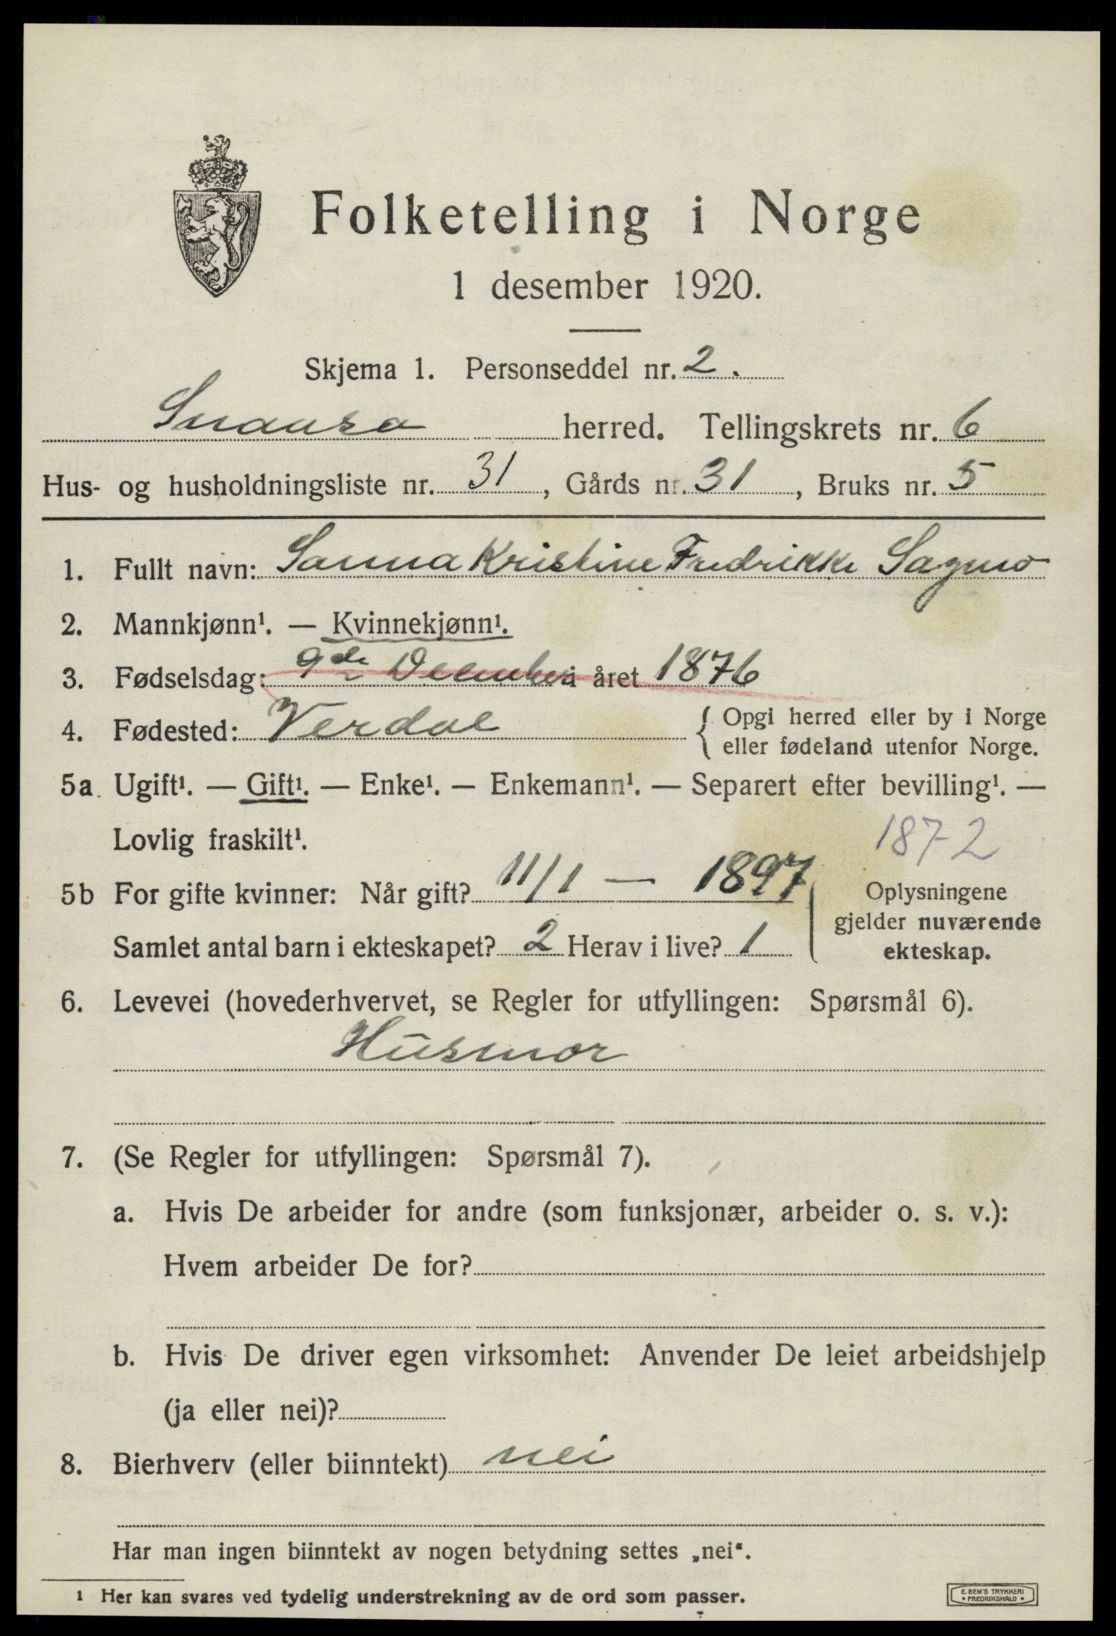 Folketelling i Norge
1 desember 1920.
Skjema 1. Personseddel nr. 2.
Snaasa herred. Tellingskrets nr. 6
Hus- og husholdningsliste nr. 31, Gårds nr. 31, Bruks nr. 5
1. Fullt navn: Sanna Kristine Fredrikke Sagmo
2. Mannkjønn¹. — Kvinnekjønn¹.
3. Fødselsdag: 9de December i året 1876
4. Fødested: Verdal { Opgi herred eller by i Norge
eller fødeland utenfor Norge.
5a. Ugift¹. — Gift¹. — Enke¹. — Enkemann¹. — Separert efter bevilling¹. —
Lovlig fraskilt¹.
1872
5b For gifte kvinner: Når gift? 11/1 — 1897
Samlet antal barn i ekteskapet? 2 Herav i live? 1
Oplysningene
gjelder nuværende
ekteskap.
6. Levevei (hovederhvervet, se Regler for utfyllingen: Spørsmål 6).
Husmor
7. (Se Regler for utfyllingen: Spørsmål 7).
a. Hvis De arbeider for andre (som funksjonær, arbeider o. s. v.):
Hvem arbeider De for?
b. Hvis De driver egen virksomhet: Anvender De leiet arbeidshjelp
(ja eller nei)?
8. Bierhverv (eller biinntekt) nei
Har man ingen biinntekt av nogen betydning settes „nei“.
1 Her kan svares ved tydelig understrekning av de ord som passer.
E. SEM'S TRYKKERI
* FREDRIKSHALD *